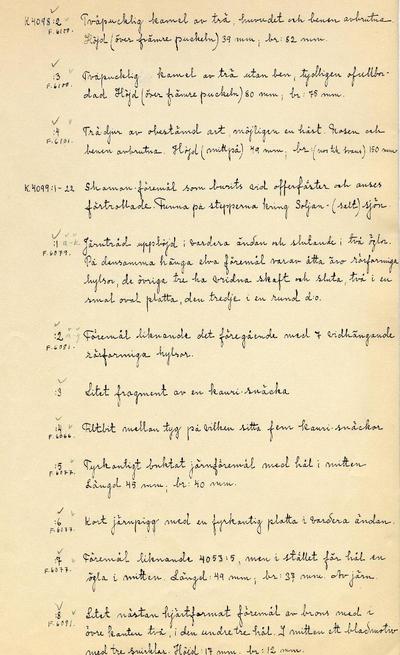 K 4098:2 Tvåpucklig kamel av trä, huvudet och benen avbrutna.
F.6109. Höjd (över främre puckeln) 39 mm; br: 52 mm.
:3 Tvåpucklig kamel av trä utan ben, tydligen ofullbor-
dad Höjd (över främre puckeln) 80 mm; br: 75 mm.
:4 Trädjur av obestämd art möjligen en häst. Nosen och
F.6101. benen avbrutna. Höjd (mittpå) 49 mm; br: svans) 150 mm
K.4099:1-22 Shaman-föremål som burits vid offerfäster och anses
förtrollade. Funna på stepperna kring Soljan-(salt) sjön.
:1 Järntråd upphöjd i vardera ändan och slutande i två öglor.
F.6079. På densamma hänga elva föremål varav åtta äro rörformiga
hylsor, de övriga tre ha vridna skaft och sluta, två i en
smal oval platta, den tredje i en rund d:o.
:2 Föremål liknande det föregående med 7 vidhängande
F.6081. rörformiga hylsor.
:3 Litet fragment av en kauri-snäcka
:4 Filtbit mellan tyg på vilken sitta fem kauri-snäckor
F.6066.
:5 Fyrkantigt buktat järnföremål med hål i mitten
F.6077. Längd 45 mm; br: 40 mm.
:6 Kort järnpigg med en fyrkantig platta i vardera ändan.
F.6077.
:7 Föremål liknande 4053:5, men i stället för hål en
F.6077. ögla i mitten. Längd: 49 mm; br: 37 mm. Av järn.
:8 Litet nästan hjärtformat föremål av brons med i
F.6091. övre kanten två, i den undre tre hål. I mitten ett bladmotiv
med tre snirklar. Höjd 17 mm. br: 12 mm.